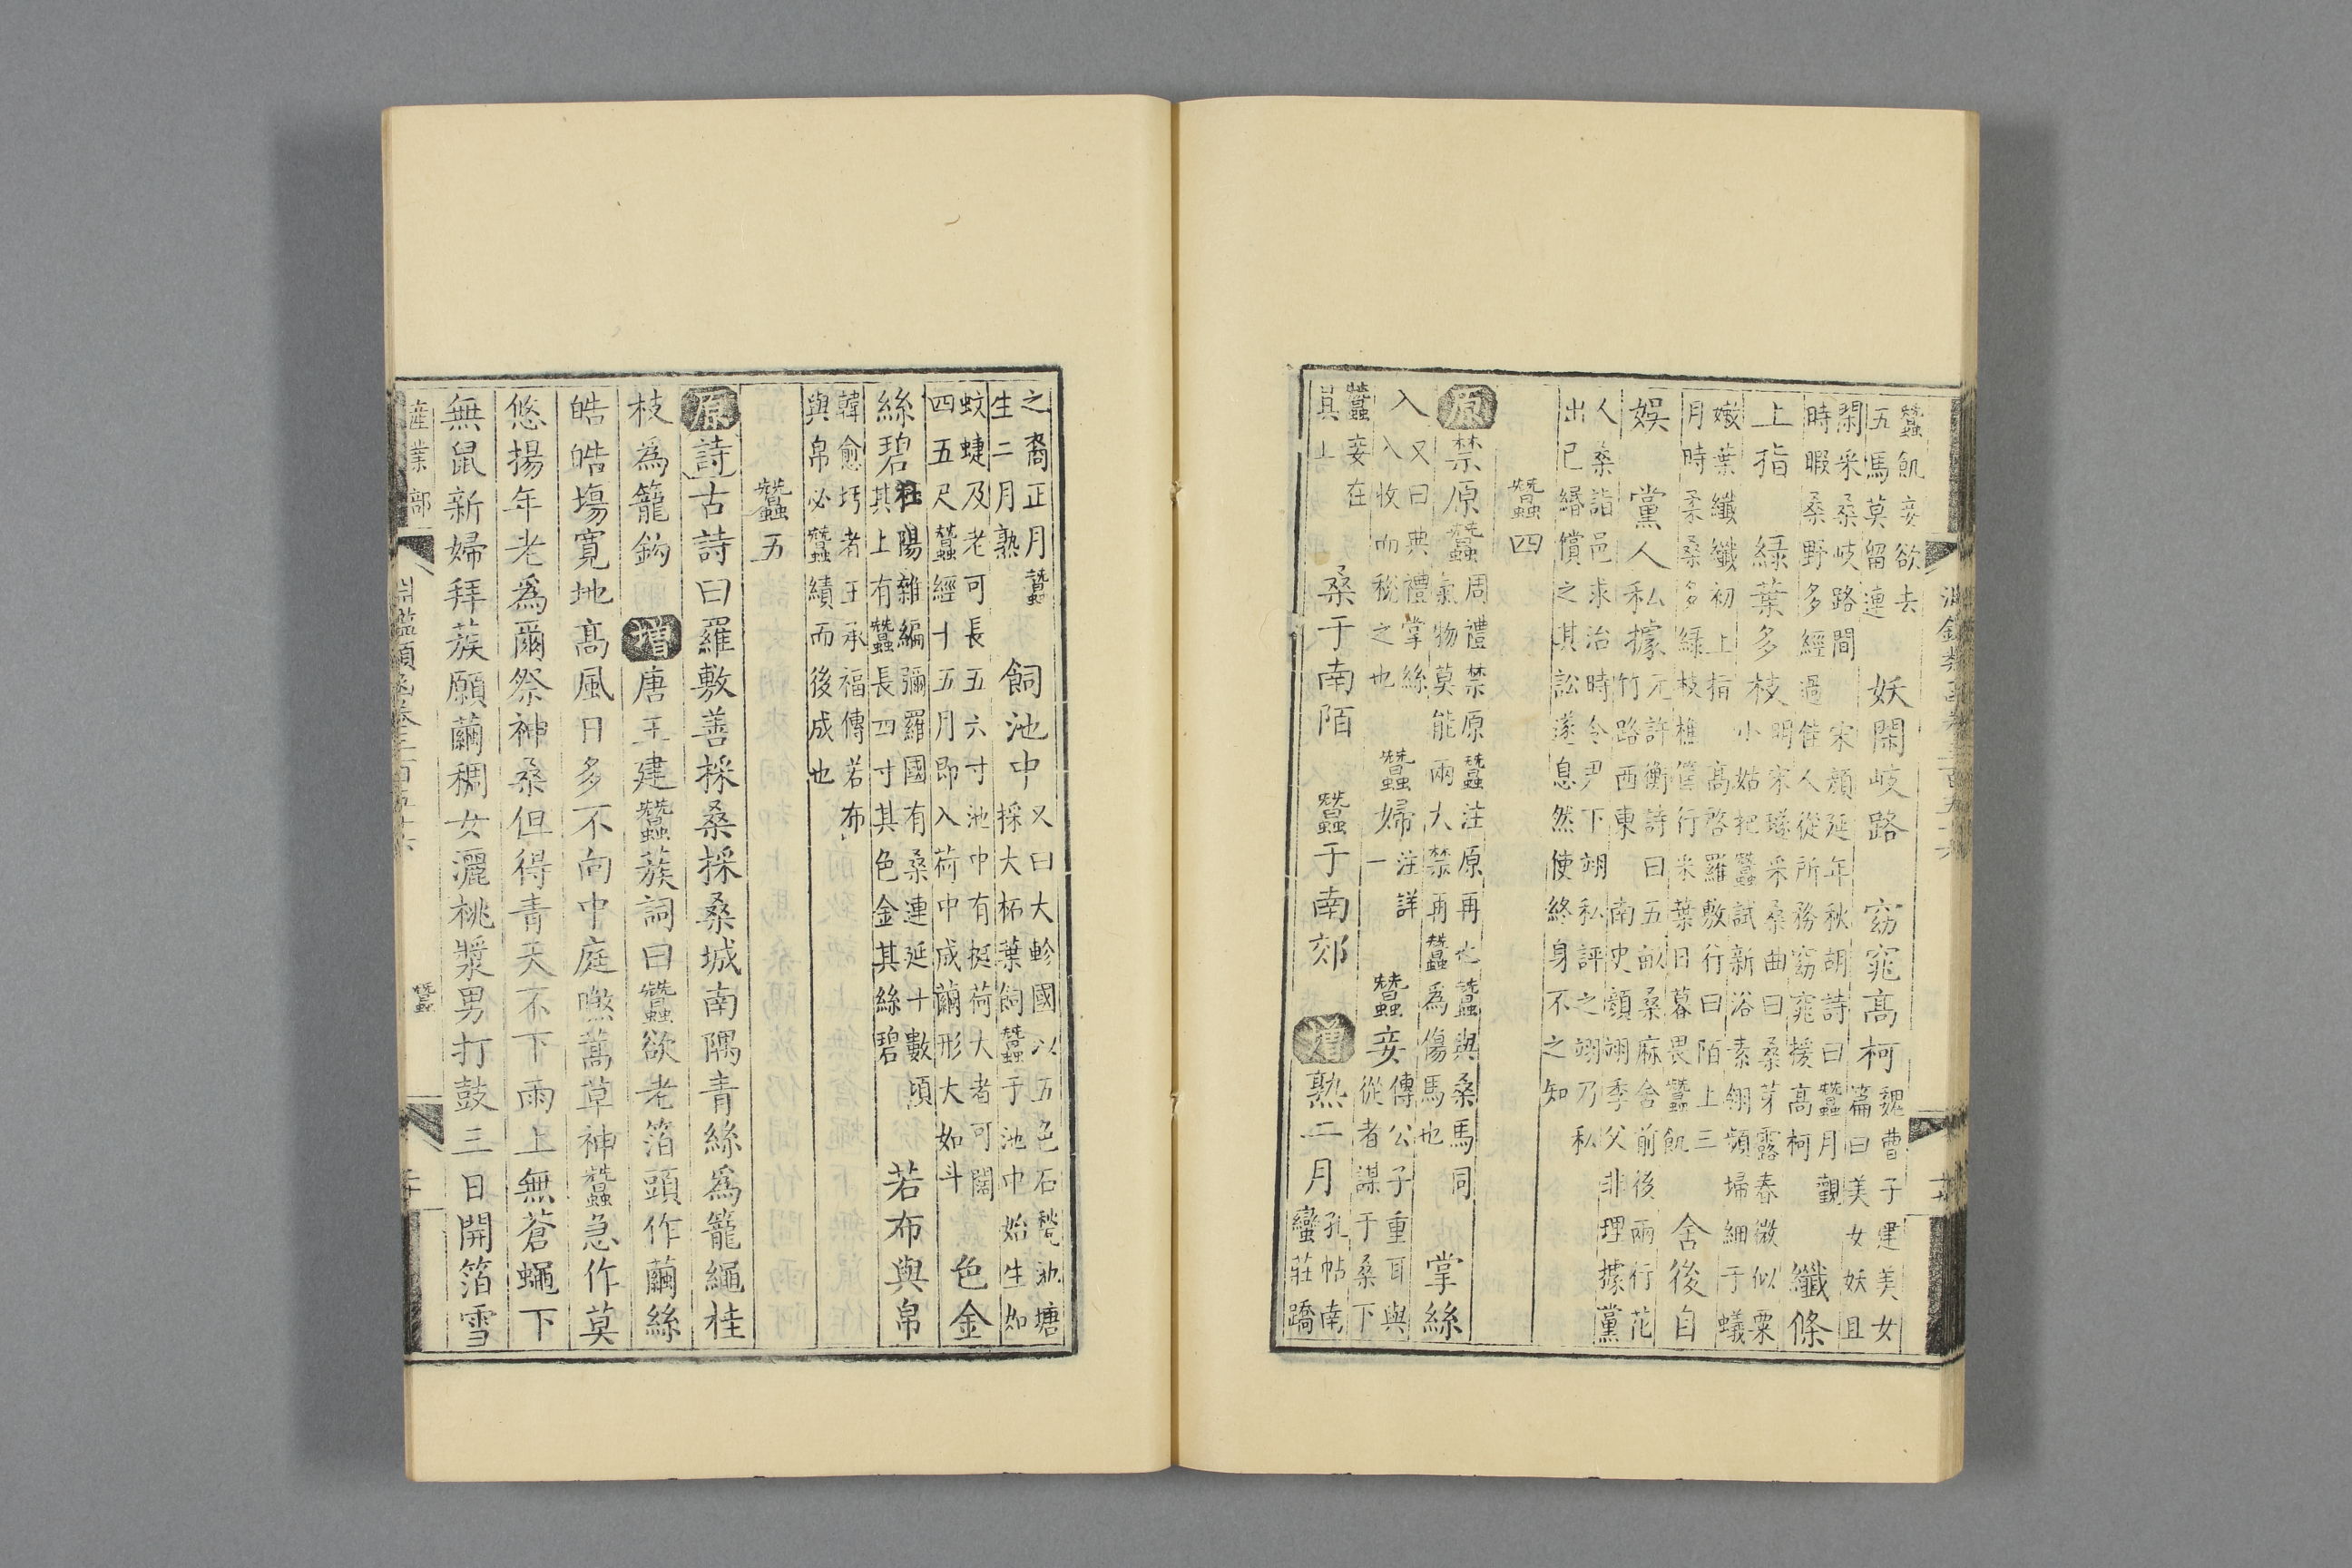 蠶飢妾欲去
五馬莫留連
妖閑岐路
宋顔延年秋胡詩曰蠶月觀
時暇桑野多經過佳人從所務窈窕援高柯
窈窕高柯
魏曹子建美女
篇曰美女妖且
閑采桑岐路間
纖條
上指
綠葉多枝
明宋璲采桑曲曰桑芽露春微似粟
小姑把蠶試新浴素翎頻埽細于蟻
嫩葉纖纖初上指
高啓羅敷行曰陌上三
月時柔桑多綠枝樵僮行采葉日暮畏蠶飢
舍後自
娛
黨人私據
元許衡詩曰五畝桑麻舍前後兩行花
竹路西東
南史顔翊季父非理據黨
人桑詣邑求治時令尹下翊私評之翊乃私
出己緡償之其訟遂息然使終身不之知
蠶四
原禁原蠶
周禮禁原蠶注原再也蠶與桑馬同
氣物莫能兩大禁再蠶爲傷馬也
掌絲
入
又曰典禮掌絲
入收而稅之也
蠶婦
注詳
一
蠶妾
傳公子重耳與
從者謀于桑下
蠶妾在
其上
桑于南陌
蠶于南郊
增熟二月
孔帖南
蠻莊蹻
之裔正月蠶
生二月熟
飼池中
又曰大軫國以五色石甃池塘
採大柘葉飼蠶于池中始生如
蚊蜨及老可長五六寸池中有挺荷大者可闊
四五尺蠶經十五月即入荷中成繭形大如斗
色金
絲碧
杜陽雜編彌羅國有桑連延十數頃
其上有蠶長四寸其色金其絲碧
若布與帛
韓愈圬者王承福傳若布
與帛必蠶績而後成也
蠶五
原詩古詩曰羅敷善採桑採桑城南隅青絲爲籠繩桂
枝爲籠鈎增唐王建蠶蔟詞曰蠶欲老箔頭作繭絲
皓皓塲寬地高風日多不向中庭㷿蒿草神蠶急作莫
悠揚年老爲爾祭神桑但得青天不下雨上無蒼蠅下
無鼠新婦拜蔟願繭稠女灑桃漿男打鼓三日開箔雪
産業部
淵鑑類函卷三百五十六
蠶